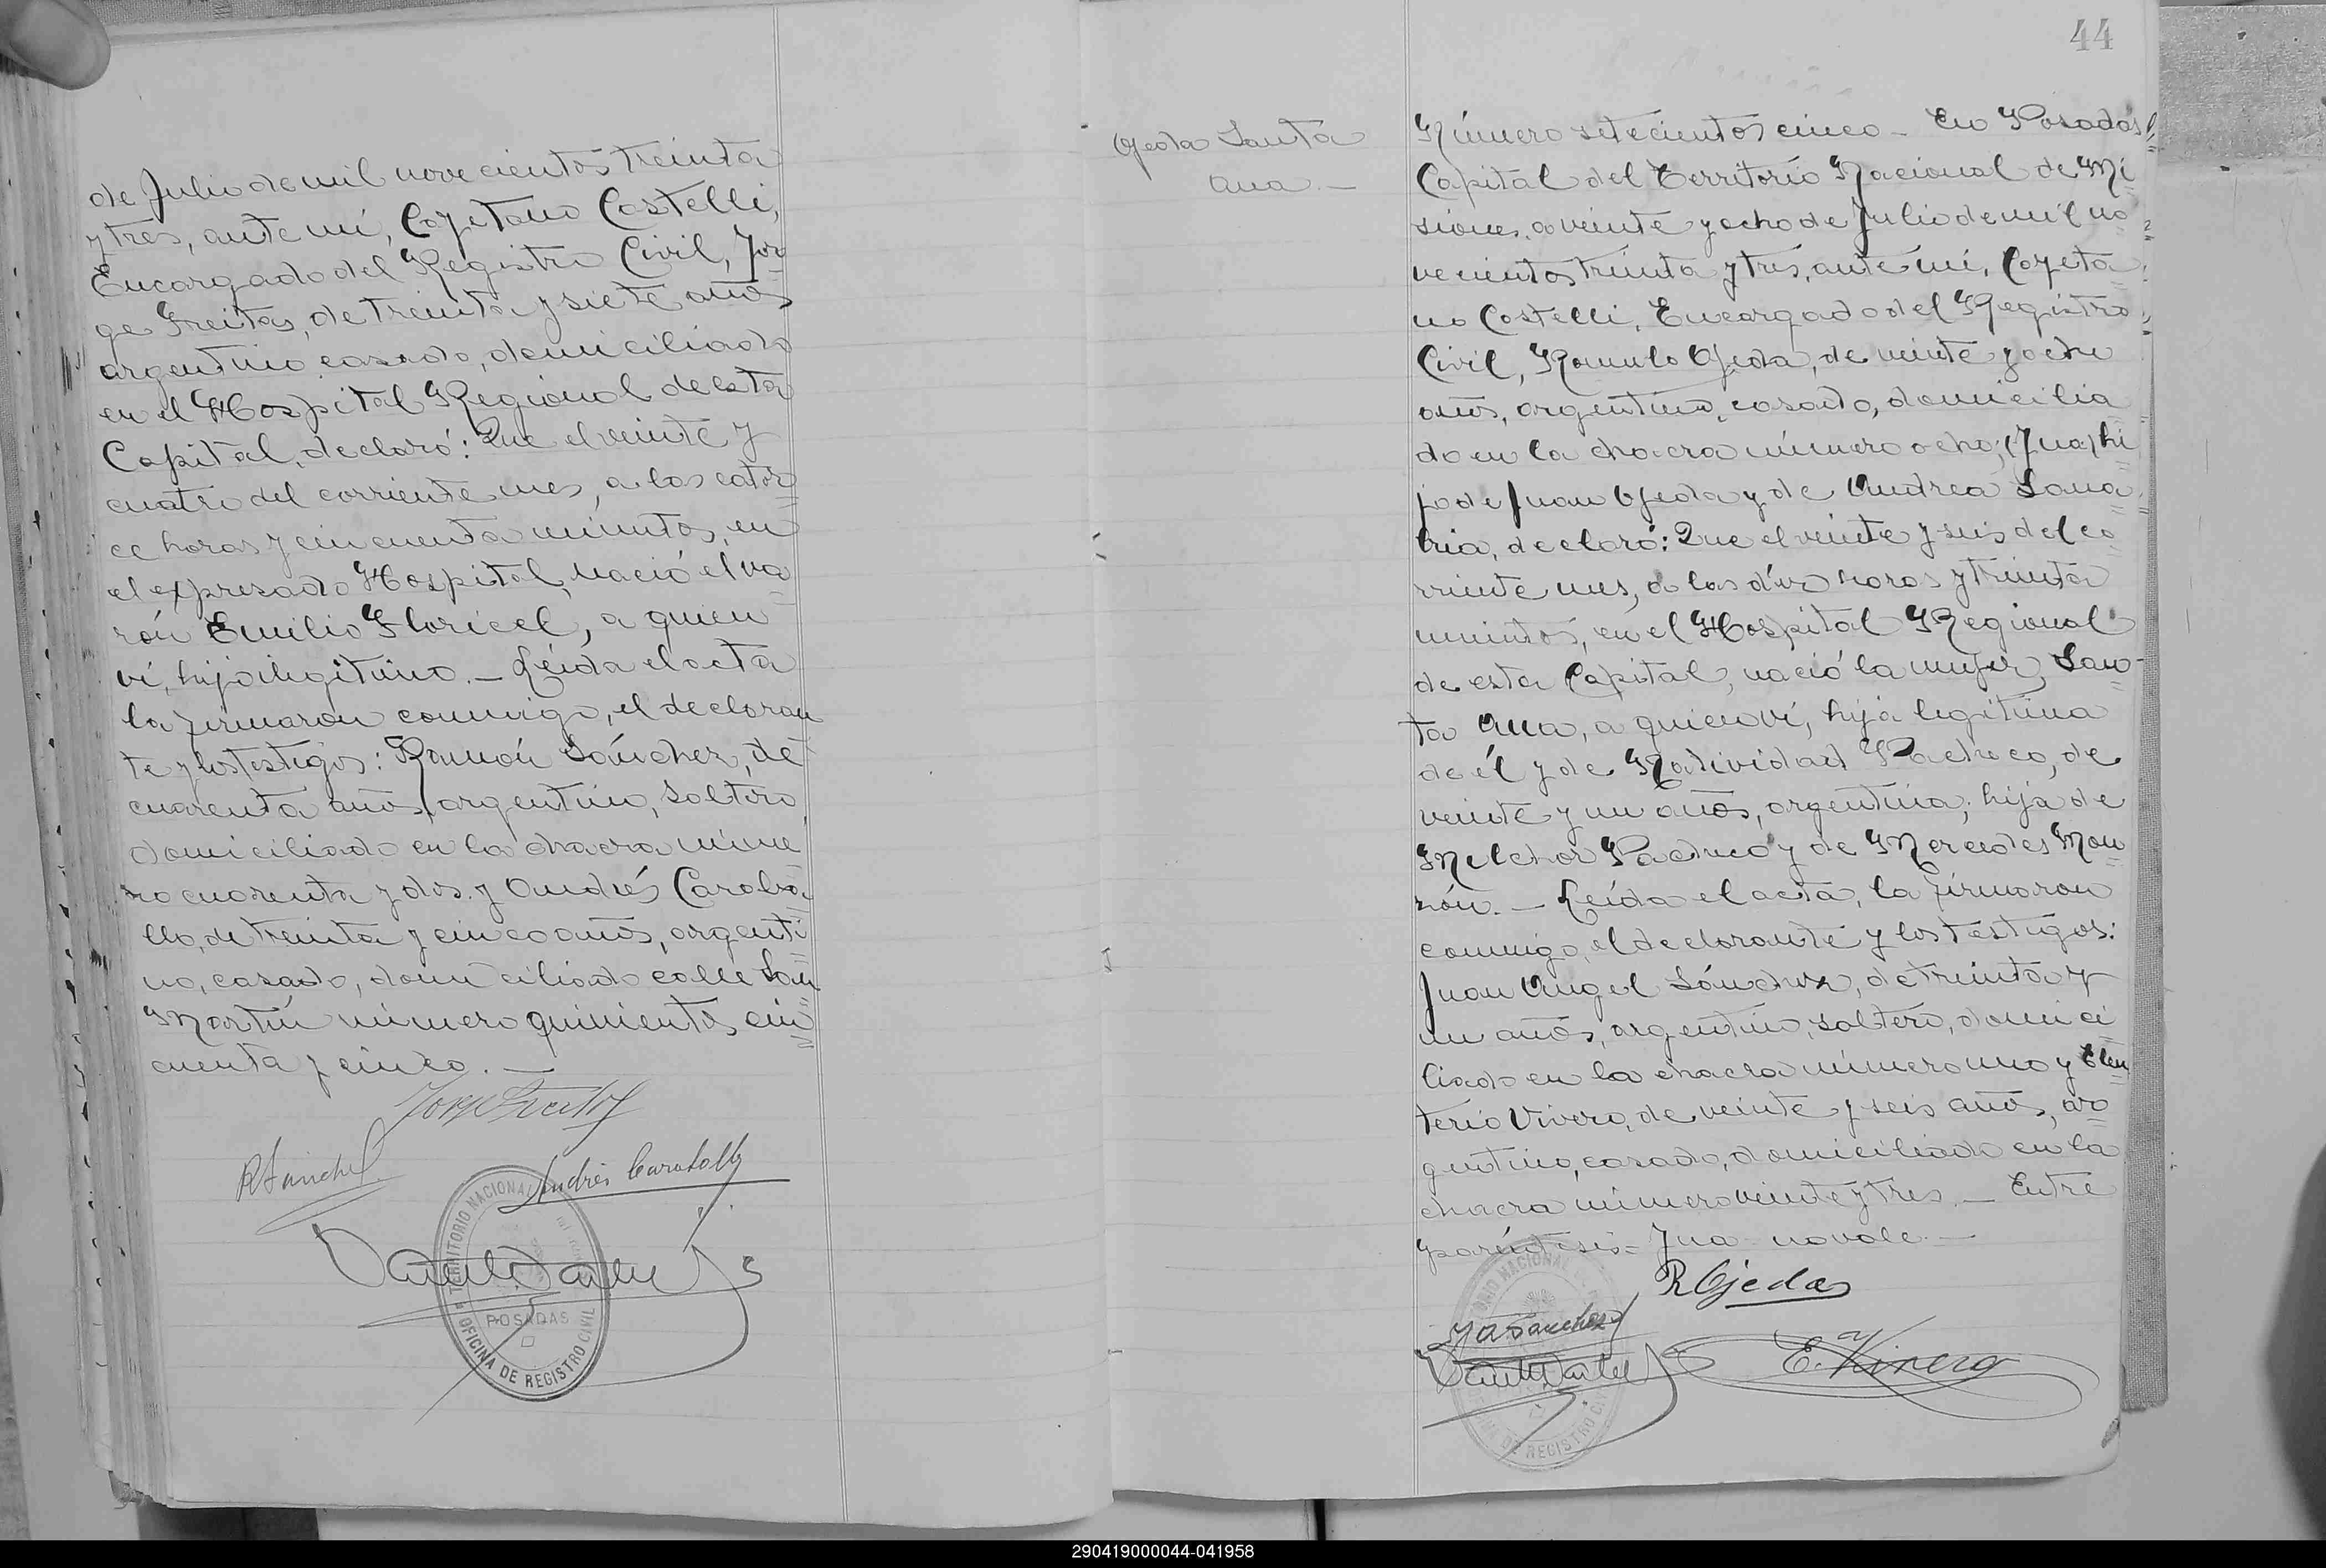 de Julio de mil novecientos treinta
y tres, ante mí, Cayetano Castelli,
Encargado del Registro Civil, Jor
ge Freitas, de treinta y siete años
argentino, casado, domiciliado
en el Hospital Regional de esta
Capital, declaró: Que el veinte y
cuatro del corriente mes, a las cator
ce horas y cincuenta minutos, en
el expresado Hospital, nació el va
rón Emilio Floricel, a quien
ví, hijo ilegítimo. — Leída el acta
la firmaron conmigo, el declaran
te y los testigos: Ramón Sánchez, de
cuarenta años, argentino, soltero,
domiciliado en la chacra núme
ro cuarenta y dos y Andrés Caraba
llo, de treinta y cinco años, argenti
no, casado, domiciliado calle San
Martín número quinientos cin
cuenta y cinco. —
R Sánchez
Andrés Caraballo
TERRITORIO NACIONAL
POSADAS
OFICINA DE REGISTRO CIVIL
44
Ojeda Santa
Ana. —
Número setecientos cinco — En Posadas,
Capital del Territorio Nacional de Mi
siones, a veinte y ocho de Julio de mil no
vecientos treinta y tres, ante mí, Cayeta
no Castelli, Encargado del Registro
Civil, Romulo Ojeda, de veinte y ocho
años, argentino, casado, domicilia
do en la chacra número ocho; (Jua) hi
jo de Juan Ojeda y de Andrea Sana
bria, declaró: Que el veinte y seis del co
rriente mes, a las diez horas y treinta
minutos, en el Hospital Regional
de esta Capital, nació la mujer, San
ta Ana, a quien ví, hija legítima
de él y de Natividad Pacheco, de
veinte y un años, argentina; hija de
Melchor Pacheco y de Mercedes Mon
zón. — Leída el acta, la firmaron
conmigo, el declarante y los testigos:
Juan Angel Sánchez, de treinta y
un años, argentino, soltero, domici
liado en la chacra número uno y Eleu
terio Vivero, de veinte y seis años, ar
gentino, casado, domiciliado en la
chacra número veinte y tres. — Entre
paréntesis — Jua — no vale. —
R Ojeda
J A Sanchez
E. Vivero
DE REGISTRO
290419000044-041958